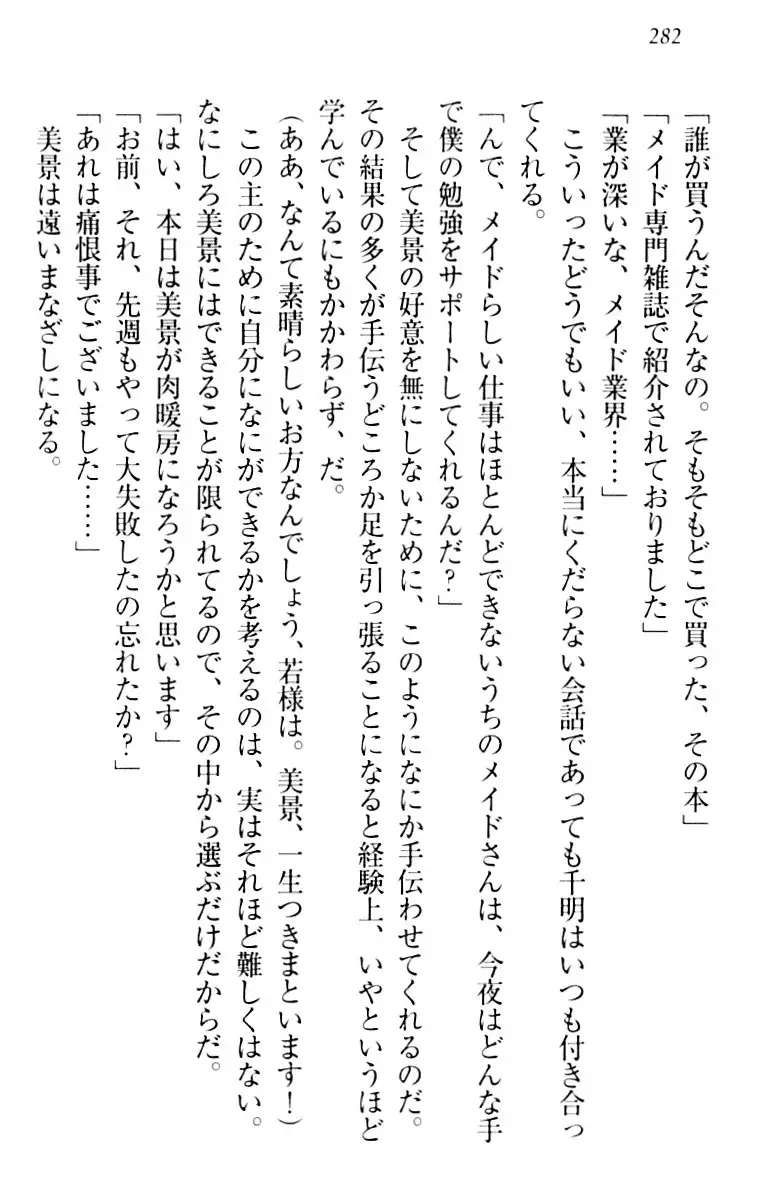 282
「誰が買うんだそんなの。そもそもどこで買った、その本」
「メイド専門雑誌で紹介されておりました」
「業が深いな、メイド業界……」
　こういったどうでもいい、本当にくだらない会話であっても千明はいつも付き合っ
てくれる。
「んで、メイドらしい仕事はほとんどできないうちのメイドさんは、今夜はどんな手
で僕の勉強をサポートしてくれるんだ？」
　そして美景の好意を無にしないために、このようになにか手伝わせてくれるのだ。
その結果の多くが手伝うどころか足を引っ張ることになると経験上、いやというほど
学んでいるにもかかわらず、だ。
（ああ、なんて素晴らしいお方なんでしょう、若様は。美景、一生つきまといます！）
　この主のために自分になにができるかを考えるのは、実はそれほど難しくはない。
なにしろ美景にはできることが限られてるので、その中から選ぶだけだからだ。
「はい、本日は美景が肉暖房になろうかと思います」
「お前、それ、先週もやって大失敗したの忘れたか？」
「あれは痛恨事でございました……」
　美景は遠いまなざしになる。